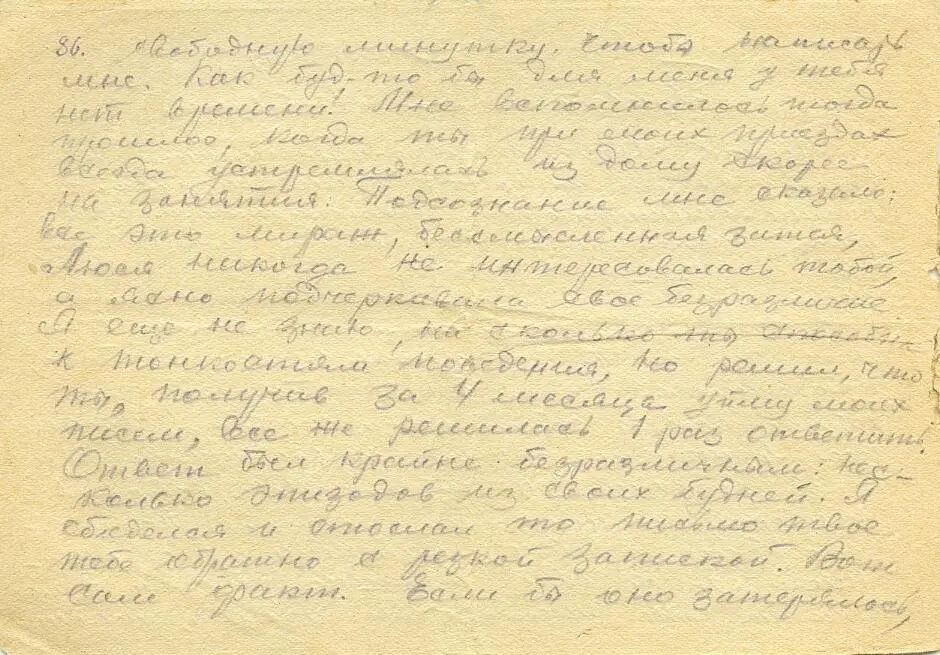 36. свободную минутку, чтобы написать
мне. Как буд-то бы для меня у тебя
нет времени! Мне вспомнилось тогда
прошлое, когда ты при моих приездах
всегда устремлялась из дому скорее
на занятия. Подсознание мне сказало:
все это мираж, бессмысленная затея,
Люся никогда не интересовалась тобой,
а явно подчеркивала свое безразличие
Я еще не знаю, на сколько ты способн.
к тонкостям поведения, но решил, что
ты, получив за 4 месяца уйму моих
писем, все же решилась 1 раз ответить.
Ответ был крайне безразличным: нес-
колько эпизодов из своих будней. Я
обиделся и отослал то письмо твое
тебе обратно с резкой запиской. Вот
сам факт. Если бы оно затерялось,